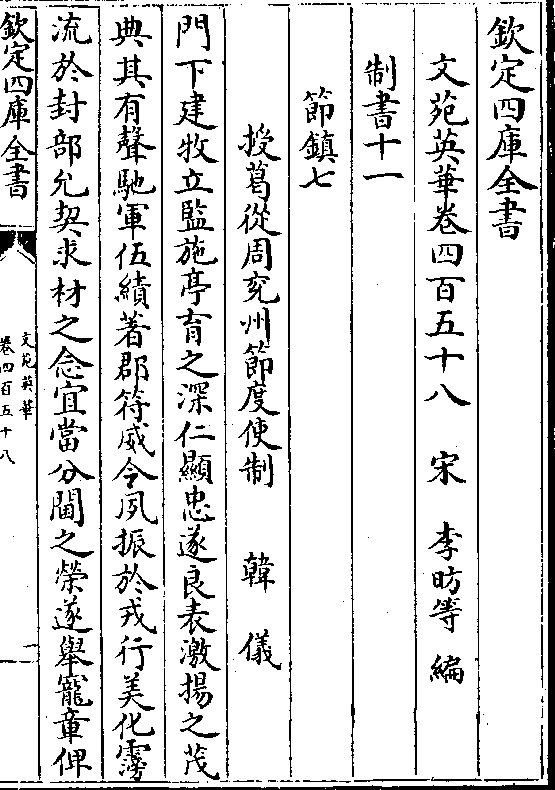 欽定四庫全書
文苑英華卷四百五十八 宋 李昉等 編
制書十一
節鎮七
授葛從周兖州節度使制 韓儀
門下建牧立監施亭育之深仁顯忠遂良表激揚之茂
典其有聲馳軍伍績著郡符威令夙振於戎行美化霶
流於封部允契求材之念宜當分閫之榮遂舉寵章俾
欽定四庫全書
文苑英華
卷四百五十八
一